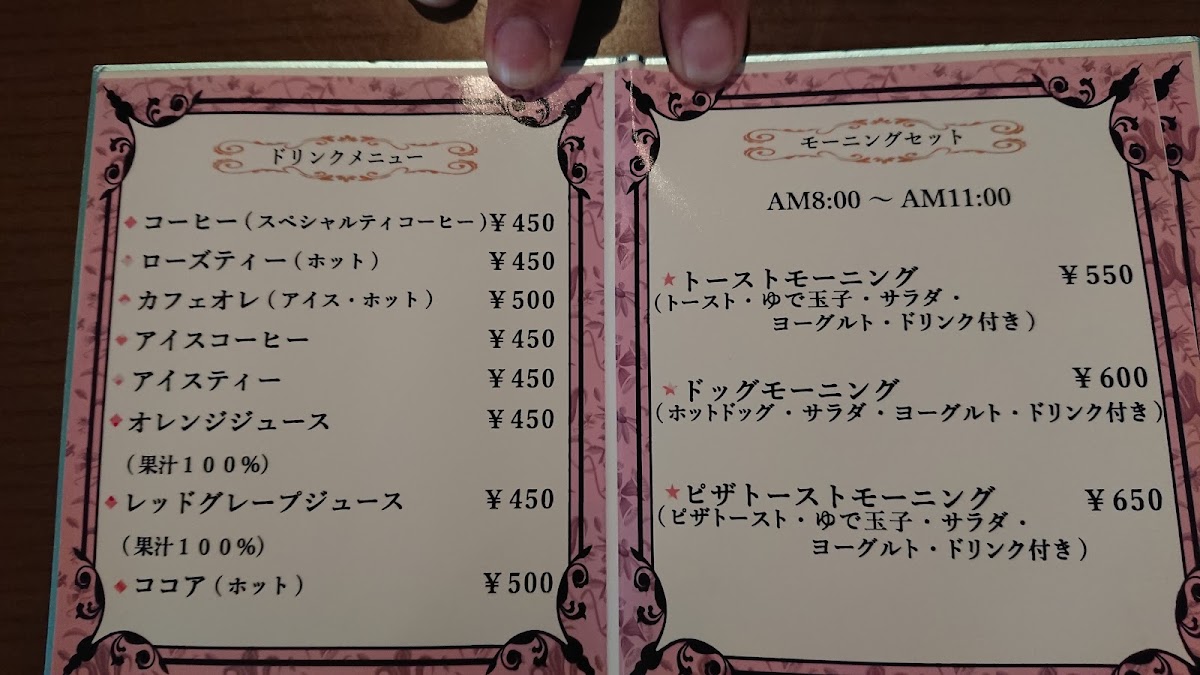 ドリンクメニュー
コーヒー(スペシャルティコーヒー)¥450
ローズティー(ホット) ¥450
カフェオレ(アイス・ホット) ¥500
アイスコーヒー ¥450
アイスティー ¥450
オレンジジュース ¥450
(果汁100%)
レッドグレープジュース ¥450
(果汁100%)
ココア(ホット) ¥500
モーニングセット
AM8:00 ～ AM11:00
★トーストモーニング ¥550
(トースト・ゆで玉子・サラダ・
ヨーグルト・ドリンク付き)
★ドッグモーニング ¥600
(ホットドッグ・サラダ・ヨーグルト・ドリンク付き)
★ピザトーストモーニング ¥650
(ピザトースト・ゆで玉子・サラダ・
ヨーグルト・ドリンク付き)